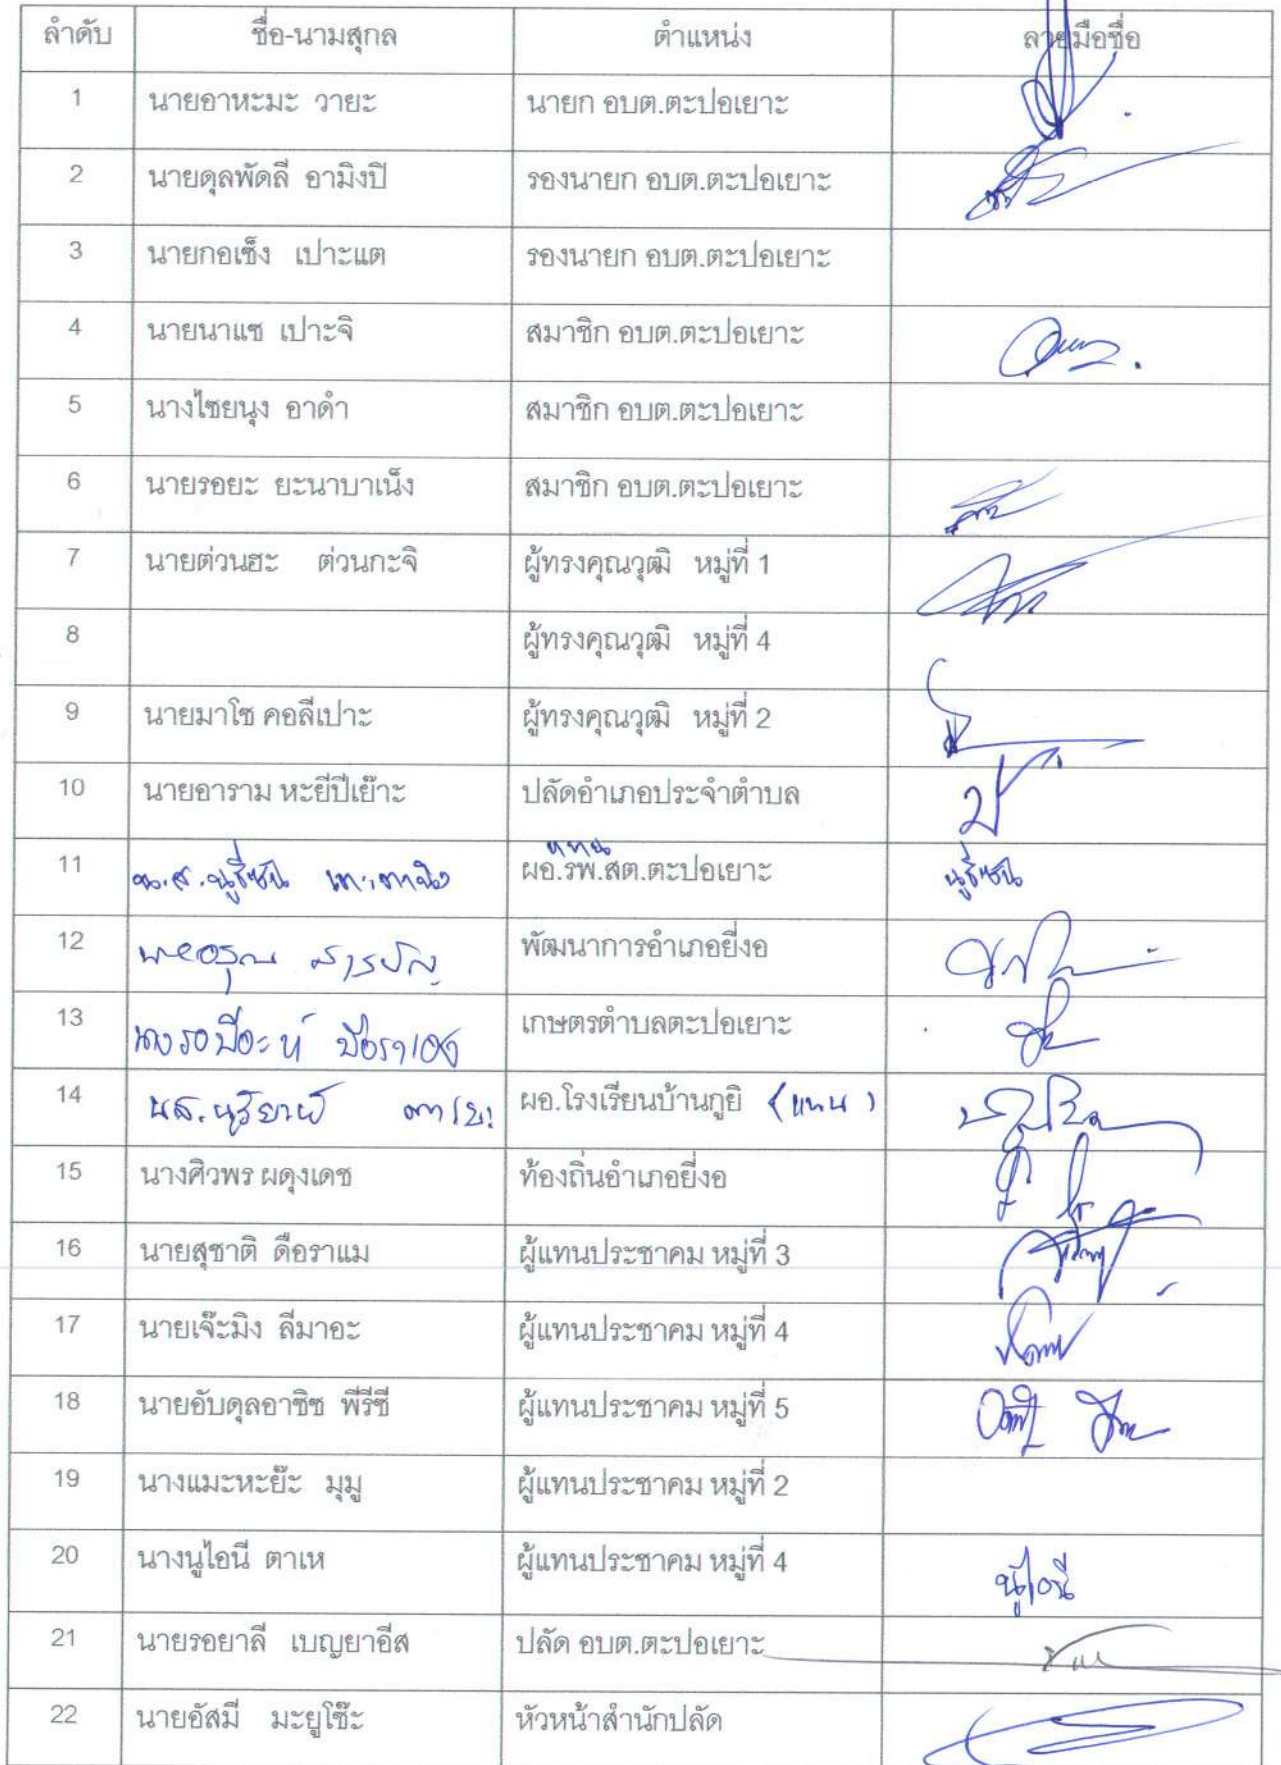 ลำดับ ชื่อ-นามสกุล ตำแหน่ง ลายมือชื่อ
1 นายอาหะมะ วายะ นายก อบต.ตะปอเยาะ
2 นายดุลพัดลี อามิงปิ รองนายก อบต.ตะปอเยาะ
3 นายกอเซ็ง เปาะแต รองนายก อบต.ตะปอเยาะ
4 นายนาแซ เปาะจิ สมาชิก อบต.ตะปอเยาะ
5 นางไซยนุง อาดำ สมาชิก อบต.ตะปอเยาะ
6 นายรอยะ ยะนาบาเน็ง สมาชิก อบต.ตะปอเยาะ
7 นายต่วนฮะ ต่วนกะจิ ผู้ทรงคุณวุฒิ หมู่ที่ 1
8 ผู้ทรงคุณวุฒิ หมู่ที่ 4
9 นายมาโซ คอลีเปาะ ผู้ทรงคุณวุฒิ หมู่ที่ 2
10 นายอาราม หะยีปีเย๊าะ ปลัดอำเภอประจำตำบล
แทน
11 น.ส. ผอ.รพ.สต.ตะปอเยาะ
12 พัฒนาการอำเภอยี่งอ
13 เกษตรตำบลตะปอเยาะ
14 นส. ผอ.โรงเรียนบ้านกูยิ (แทน)
15 นางศิวพร ผดุงเดช ท้องถิ่นอำเภอยี่งอ
16 นายสุชาติ ดือราแม ผู้แทนประชาคม หมู่ที่ 3
17 นายเจ๊ะมิง ลีมาอะ ผู้แทนประชาคม หมู่ที่ 4
18 นายอับดุลอาซิซ พีรีซี ผู้แทนประชาคม หมู่ที่ 5
19 นางแมะหะย๊ะ มุมู ผู้แทนประชาคม หมู่ที่ 2
20 นางนูไอนี ตาเห ผู้แทนประชาคม หมู่ที่ 4 นูไอนี
21 นายรอยาลี เบญยาอีส ปลัด อบต.ตะปอเยาะ
22 นายอัสมี มะยูโซ๊ะ หัวหน้าสำนักปลัด